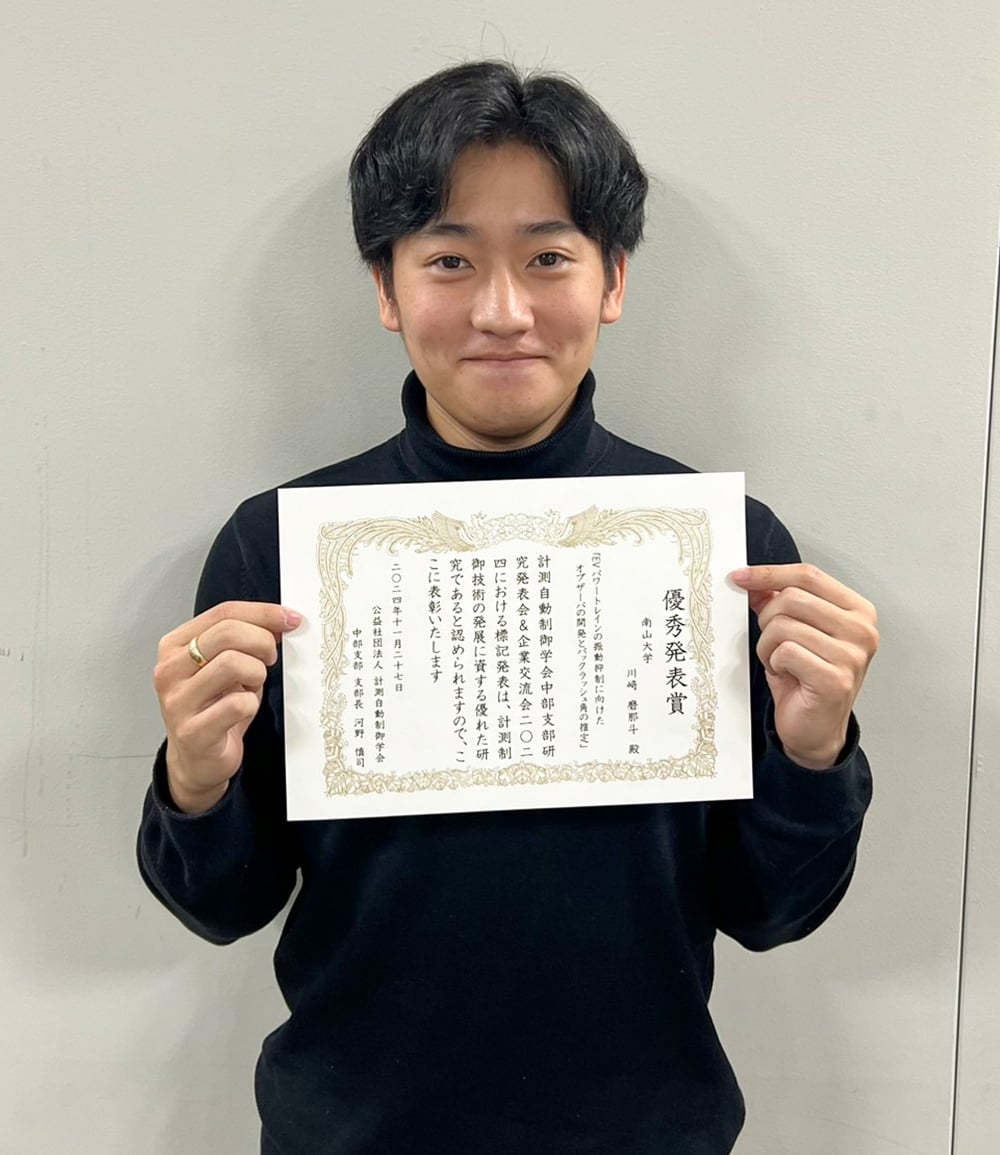 優秀発表賞
南山大学
川崎 磨那斗 殿
「EVパワートレインの振動抑制に向けた
オブザーバの開発とバックラッシュ角の推定」
計測自動制御学会中部支部研
究発表会&企業交流会二〇二
四における標記発表は、計測制
御技術の発展に資する優れた研
究であると認められますので、こ
こに表彰いたします
二〇二四年十一月二十七日
公益社団法人 計測自動制御学会
中部支部 支部長 河野 慎司